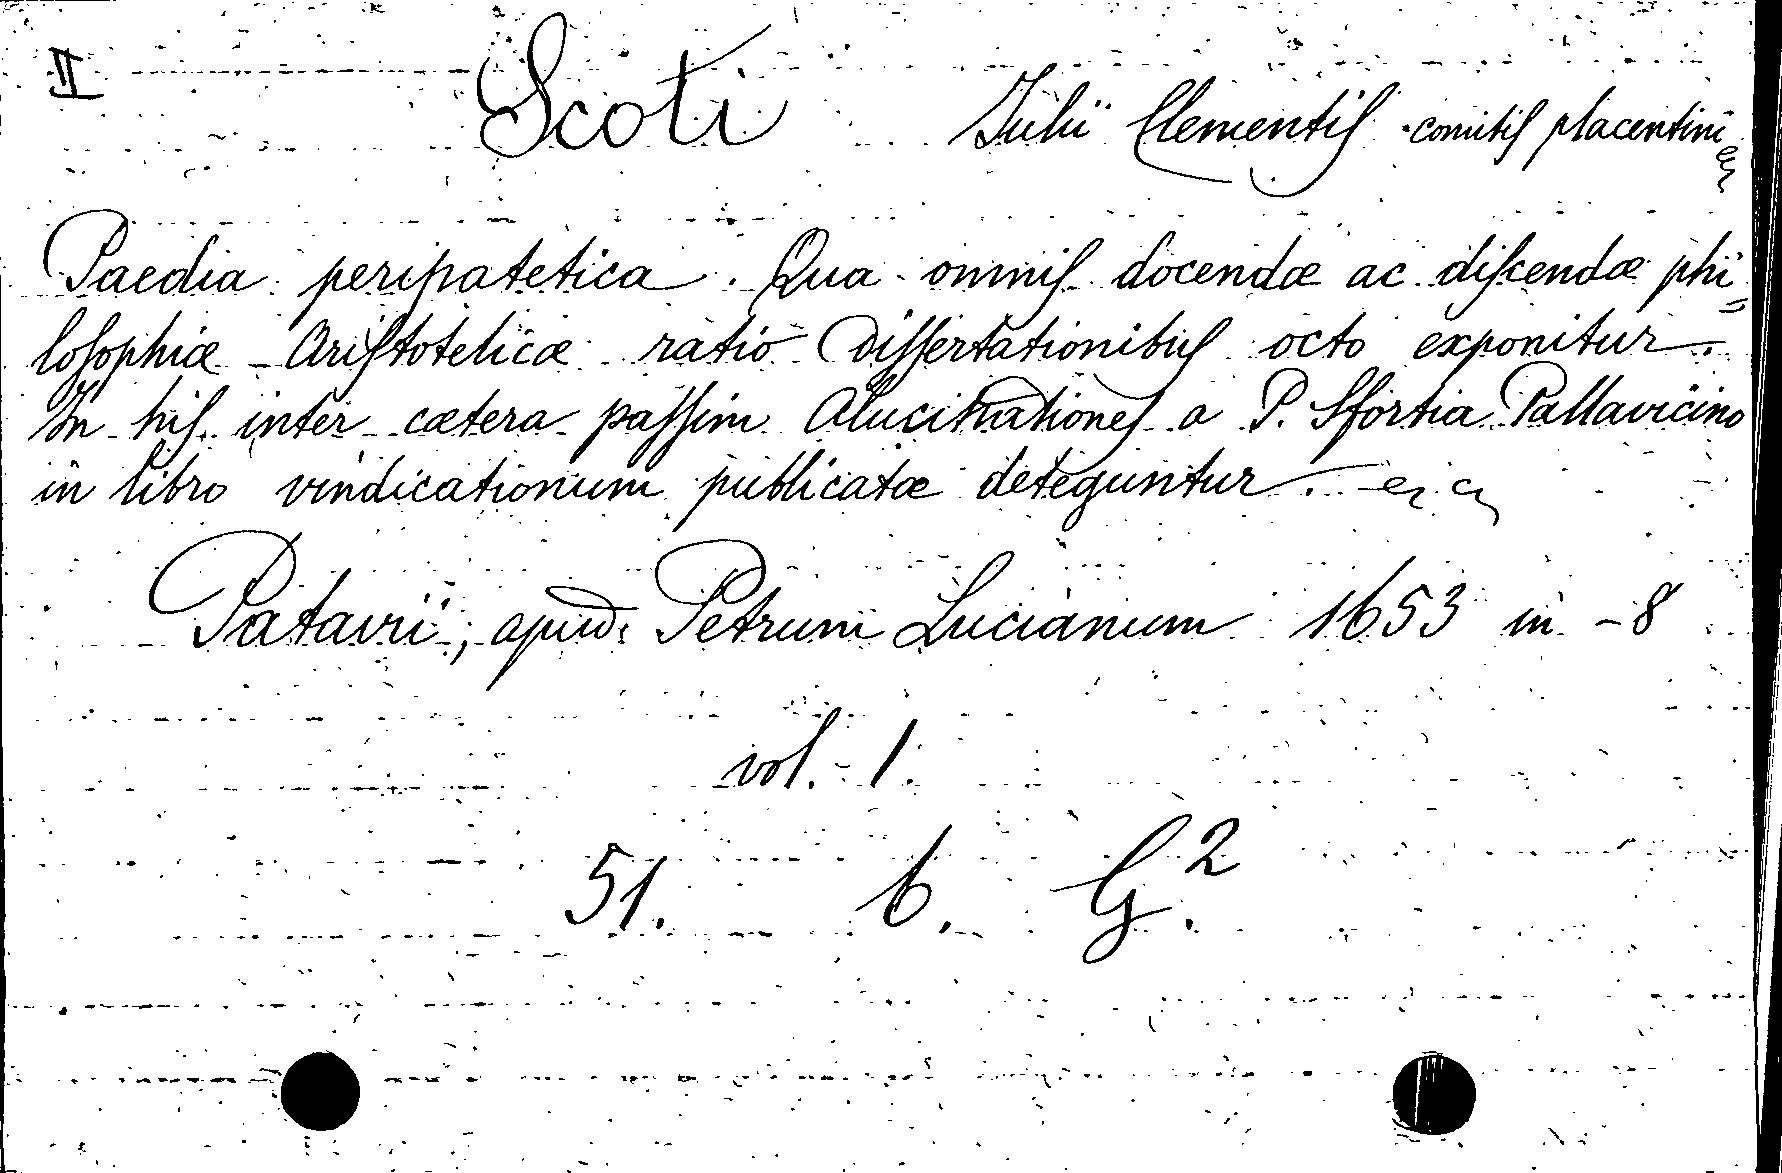 II Scoti Julii Clementis comitis placentini
Paedia peripatetica. Qua omnis docendæ ac discendæ phi=
losophiæ Aristotelicæ ratio Dissertationibus octo exponitur.
In his inter cætera passim Alucinationes a P. Sfortia Pallavicino
in libro vindicationum publicatæ deteguntur.
Patavii, apud Petrum Lucianum 1653 in-8
vol. 1.
51. b. G.²